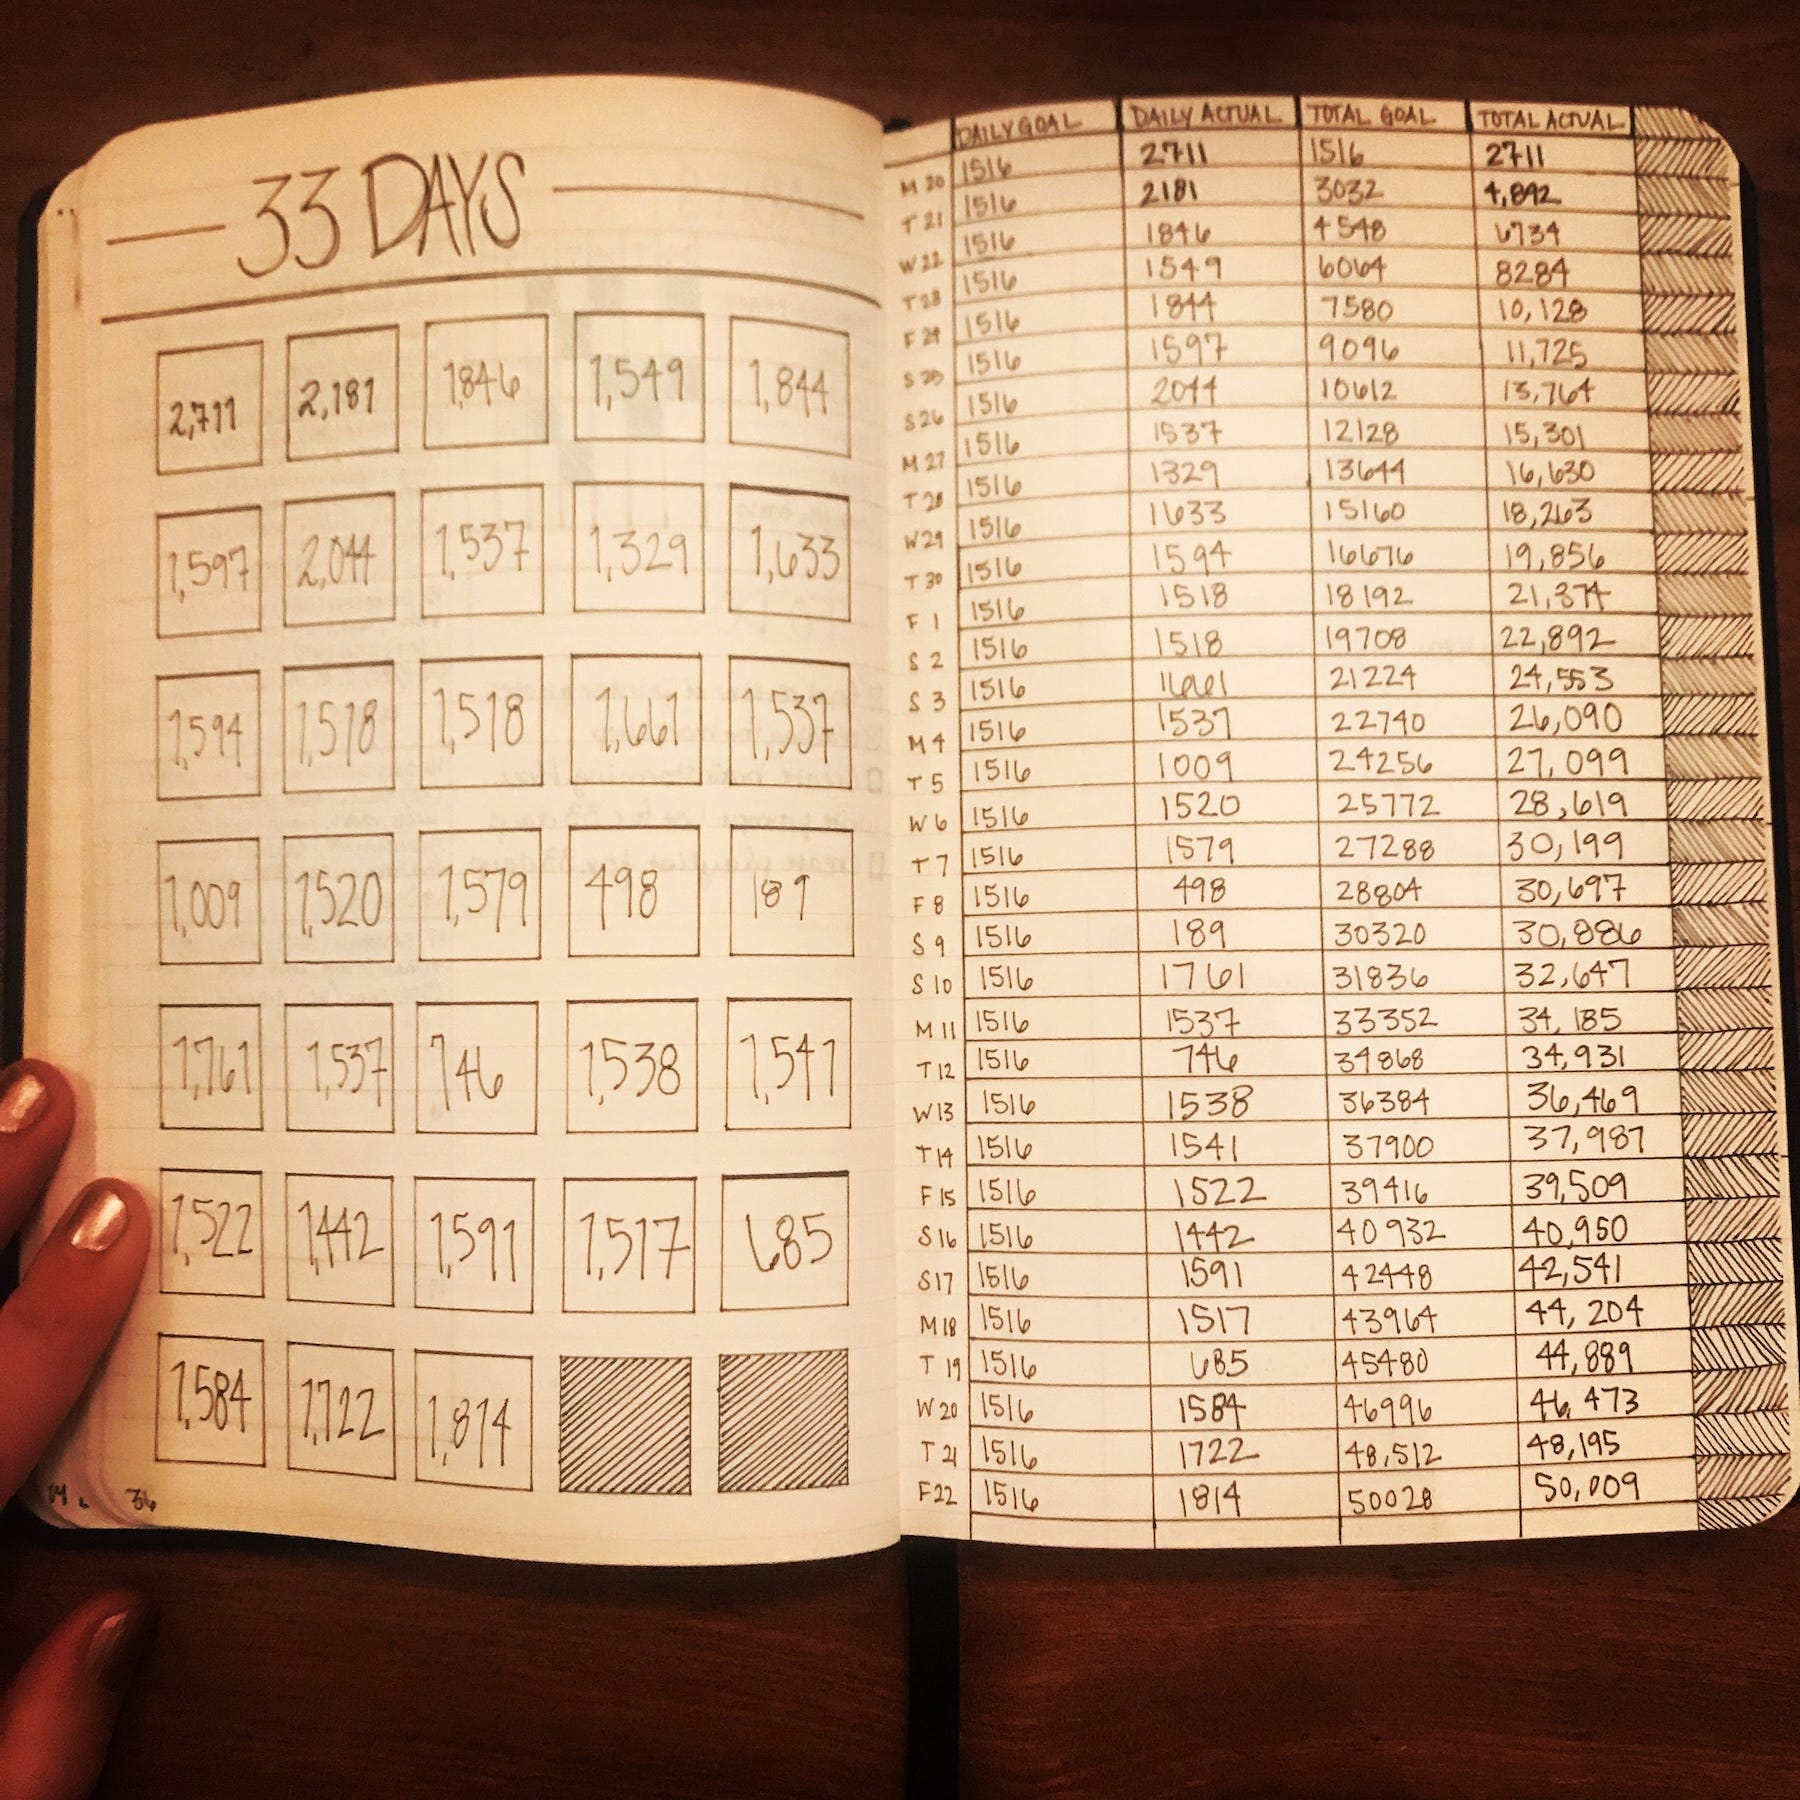 33 DAYS
2,711 2,181 1,846 1,549 1,844
1,597 2,044 1,537 1,329 1,633
1,594 1,518 1,518 1,661 1,537
1,009 1,520 1,579 498 189
1,761 1,537 746 1,538 1,541
1,522 1,442 1,591 1,517 685
1,584 1,722 1,814
36
DAILY GOAL DAILY ACTUAL TOTAL GOAL TOTAL ACTUAL
M 20 1516 2711 1516 2711
T 21 1516 2181 3032 4,892
W 22 1516 1846 4548 6734
T 23 1516 1549 6064 8284
F 24 1516 1844 7580 10,128
S 25 1516 1597 9096 11,725
S 26 1516 2044 10612 13,764
M 27 1516 1537 12128 15,301
T 28 1516 1329 13644 16,630
W 29 1516 1633 15160 18,263
T 30 1516 1594 16676 19,856
F 1 1516 1518 18192 21,374
S 2 1516 1518 19708 22,892
S 3 1516 1661 21224 24,553
M 4 1516 1537 22740 26,090
T 5 1516 1009 24256 27,099
W 6 1516 1520 25772 28,619
T 7 1516 1579 27288 30,199
F 8 1516 498 28804 30,697
S 9 1516 189 30320 30,886
S 10 1516 1761 31836 32,647
M 11 1516 1537 33352 34,185
T 12 1516 746 34868 34,931
W 13 1516 1538 36384 36,469
T 14 1516 1541 37900 37,987
F 15 1516 1522 39416 39,509
S 16 1516 1442 40932 40,950
S 17 1516 1591 42448 42,541
M 18 1516 1517 43964 44,204
T 19 1516 685 45480 44,889
W 20 1516 1584 46996 46,473
T 21 1516 1722 48,512 48,195
F 22 1516 1814 50028 50,009